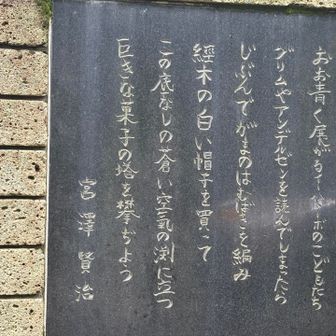 おお青く展がるイーハトーボのこどもたち
グリムやアンデルセンを読んでしまったら
じぶんでがまのはむばきを編み
經木の白い帽子を買って
この底なしの蒼い空氣の淵に立つ
巨きな菓子の塔を攀ぢよう
宮澤賢治